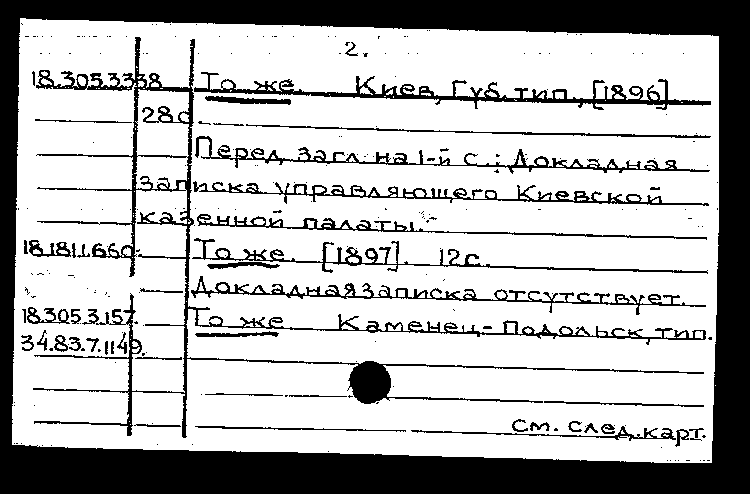 2.
18.305.3.338 То же. Киев, Губ. тип., [1896]
28с.
Перед загл. на 1-й с.: Докладная
записка управляющего Киевской
казенной палаты.
18.181.1.660. То же. [1897]. 12с.
Докладная записка отсутствует.
18.305.3.157. То же. Каменец-Подольск, тип.
34.83.7.1149.
см. след. карт.